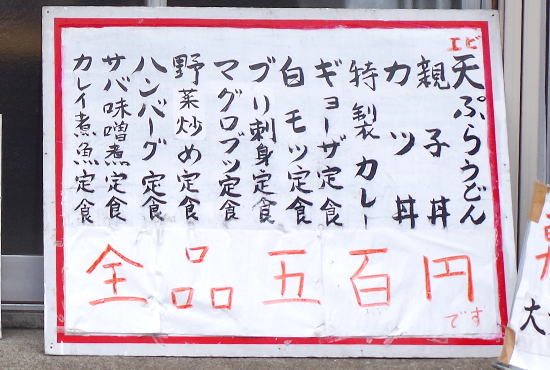 エビ
天ぷらうどん
親子丼
カツ丼
特製カレー
ギョーザ定食
白モツ定食
ブリ刺身定食
マグロブツ定食
野菜炒め定食
ハンバーグ定食
サバ味噌煮定食
カレイ煮魚定食
全品五百円
です
大